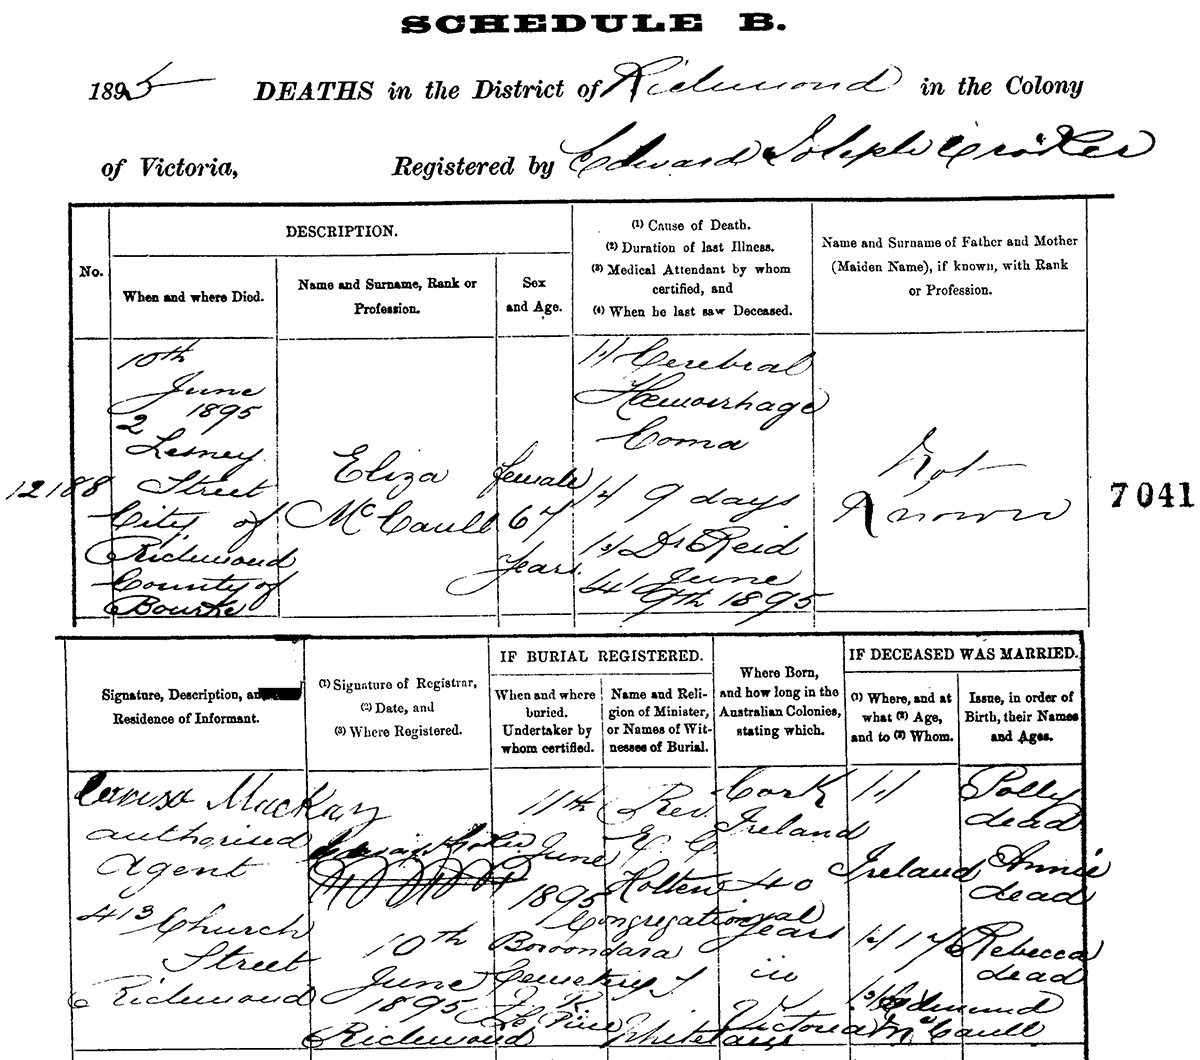 SCHEDULE B.
1895 DEATHS in the District of Richmond in the Colony
of Victoria, Registered by Edward Joseph Crooker
No.
DESCRIPTION.
When and where Died.
Name and Surname, Rank or
Profession.
Sex
and Age.
(1) Cause of Death.
(2) Duration of last Illness.
(3) Medical Attendant by whom
certified, and
(4) When he last saw Deceased.
Name and Surname of Father and Mother
(Maiden Name), if known, with Rank
or Profession.
12188
10th
June
1895
2
Lesney
Street
City of
Richmond
County of
Bourke
Eliza
McCaull
female
67
Years
1/ Cerebral
Hæmorrhage
Coma
2/ 9 days
3/ Dr Reid
4/ June
9th 1895
Not
Known
7041
Signature, Description, and
Residence of Informant.
(1) Signature of Registrar,
(2) Date, and
(3) Where Registered.
IF BURIAL REGISTERED.
When and where
buried.
Undertaker by
whom certified.
Name and Reli-
gion of Minister,
or Names of Wit-
nesses of Burial.
Where Born,
and how long in the
Australian Colonies,
stating which.
IF DECEASED WAS MARRIED.
(1) Where, and at
what (2) Age,
and to (3) Whom.
Issue, in order of
Birth, their Names
and Ages.
MacKay
authorised
Agent
413
Church
Street
Richmond
10th
June
1895
Richmond
11th
June
1895
Boroondara
Cemetery
Le Pine
Rev
Holten
Congregational
Whitelaw
Cork
Ireland
40
years
in
Victoria
1/
Ireland
2/ 17
3/ Edmund
McCaull
Polly
dead
Annie
dead
Rebecca
dead